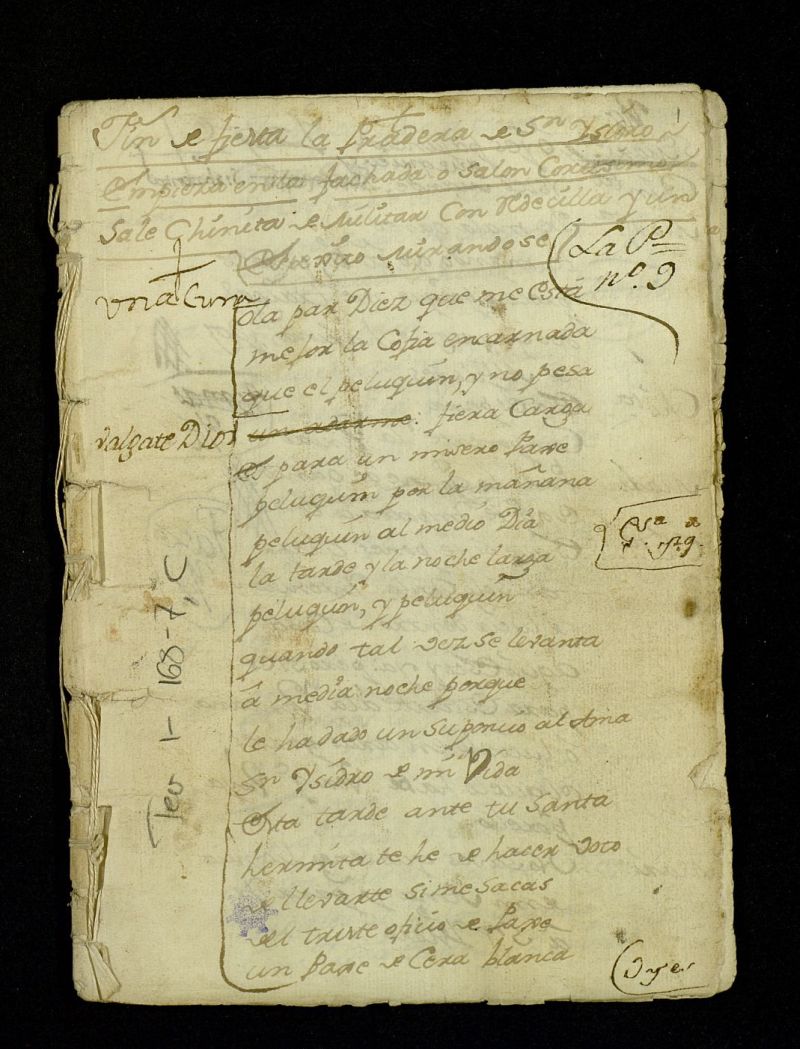 Fin de fiesta la Pradera de Sn Ysidro
Empieza en la fachada o Salon Cortisimo
Sale Chinita de Militar Con Redecilla y un
Espejito mirandose
La Pa
nº. 9
Una Cura
ola par Diez que me está
mejor la Cofia encarnada
que el peluquin, y no pesa
un adarme. fiera Carga
valgate Dios
es para un misero Page
peluquin por la mañana
peluquin al medio Dia
la tarde y la noche larga
peluquin, y peluquin
quando tal vez se levanta
á media noche porque
le ha dado un Suponcio al Ama
Sn Ysidro de mi Vida
Esta tarde ante tu Santa
hermita te he de hacer voto
de llevarte si me Sacas
del triste oficio de Page
un Page de Cera blanca
Tea 1-168-7, C